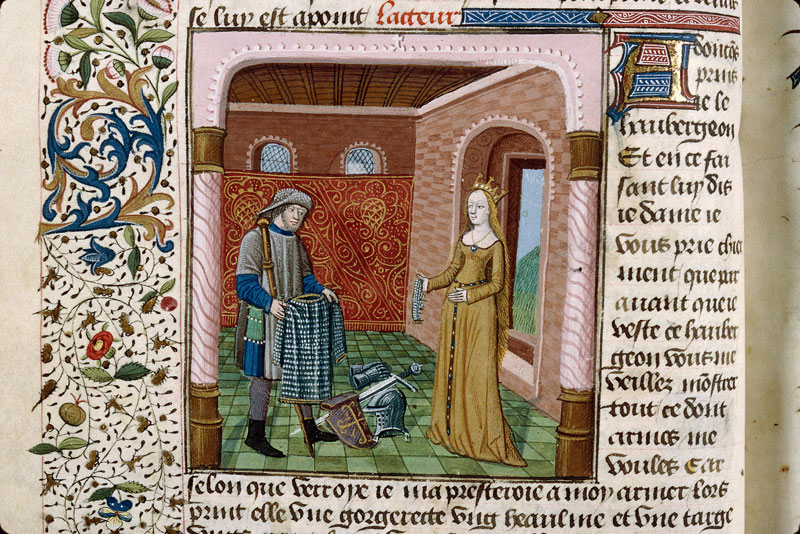 se luy est apoint Lacteur
Adoncq̄s
prins
ie le
haubergeon
Et en ce fai
sant luy dis
ie dame ie
vous prie chie
rement que par
auant que ie
veste ce hauber
geon vous me
veillez mōstrer
tout ce dont
armer me
voules Car
selon que verroye ie ma presteroie a moy armer Lors
print elle vne gorgerette vng heaulme et vne targe